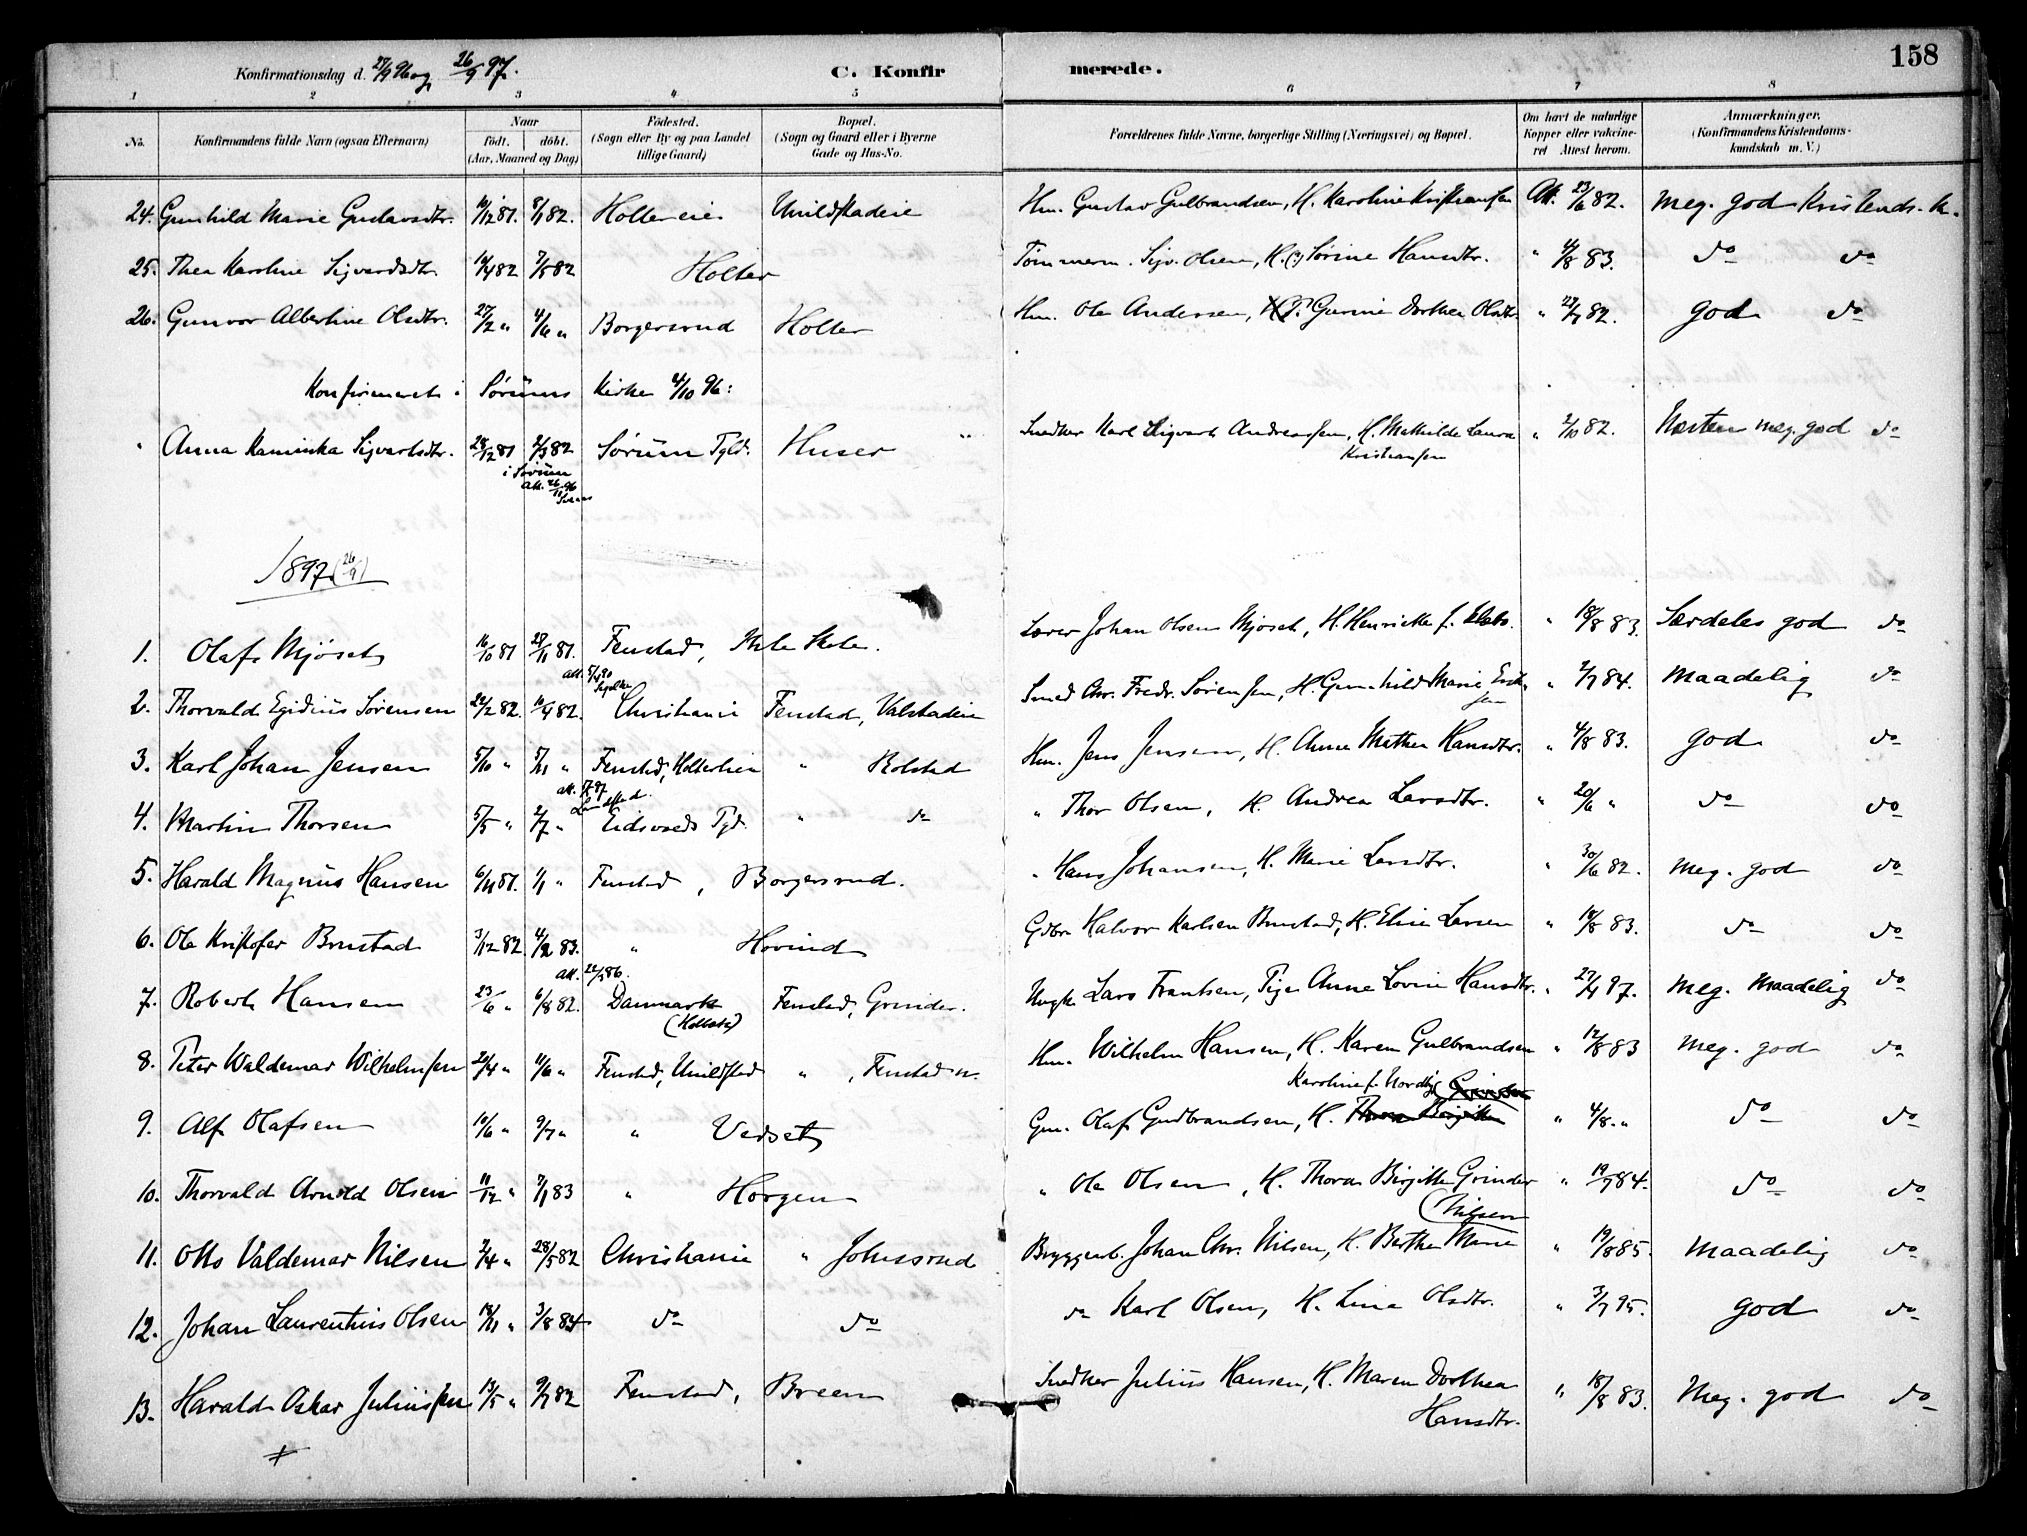 158
Konfirmationsdag d. 27/9 96 og 26/9 97.
C. Konfirmerede.
1 2 3 4 5 6 7 8
No. Konfirmandens fulde Navn (ogsaa Efternavn) Naar født. døbt. (Aar, Maaned og Dag) Fødested. (Sogn eller By og paa Landet tillige Gaard) Bopæl. (Sogn og Gaard eller i Byerne Gade og Hus-No. Forældrenes fulde Navne, borgerlige Stilling (Næringsvei) og Bopæl. Om havt de naturlige Kopper eller vakcineret Attest herom. Anmærkninger. (Konfirmandens Kristendomskundskab m. V.)
24. Gunhild Marie Gustavsdtr. 10/12 81. 8/1 82. Holter eie Unildstadeie Hm. Gustav Gulbrandsen, H. Karoline Kristiansen Att. 23/6 82. Meg. god Kristends. k.
25. Thea Karoline Sigvardsdtr. 14/4 82 7/5 82 Holter Tømmerm. Sigv. Olsen, H. Sørine Hansdtr. " 4/8 83. do do
26. Gunvor Albertine Olsdtr. 27/2 " 4/6 " Borgersrud Holter Hm. Ole Andersen, Gunine Dorthea Olsdtr. " 27/7 82. god do
Konfirmeret i Sørums Kirke 4/10 96:
" Anna Kaminka Sigvartsdtr. 28/12 81 2/3 82 Sørum Tgld. Huser Snedker Karl Sigvart Andreassen, H. Mathilde Laura " 2/10 82. Næsten meg. god do
i Sørum Kristiansen
Att. 26/11 96
1897 (26/9)
1. Olaf Mjøset 16/10 81 28/11 81. Fenstad, Skole. Lærer Johan Olsen Mjøset, H. Henrikke f. " 18/8 83. Særdeles god do
2. Thorvald Egidius Sørensen 22/2 82. 10/4 82. Christiania Fenstad, Valstadeie Smed Chr. Fredr. Sørensen, H. Gunhild Marie Eriksen " 2/7 84. Maadelig do
3. Karl Johan Jensen 5/10 " 5/11 " Fenstad, Holterhein " Rolstad Hm. Jens Jensen, H. Anne Mathea Hansdtr. " 4/8 83. god do
4. Martin Thorsen 5/5 " 2/7 " Eidsvolds Tgd. " do " Thor Olsen, H. Andrea Larsdtr. " 20/6 " do do
5. Harald Magnus Hansen 6/11 81. 1/1 " Fenstad, Borgersrud. " Hans Johansen, H. Marie Larsdtr. " 30/6 82. Meg. god do
6. Ole Kristofer Brustad 3/12 82. 4/2 83. " Hovind Gdbr. Halvor Karlsen Brustad, H. Eline Larsen " 18/8 83. do do
Att. 22/3 86.
7. Robert Hansen 23/6 " 6/8 82. Danmark Fenstad, Grinder. Ungk. Lars Frantsen, Pige Anne Lovise Hansdtr. " 27/4 97. Meg. Maadelig do
(Holbæk)
8. Peter Waldemar Wilhelmsen 20/4 " 11/6 " Fenstad, Unildstad " , Fenstad n. Hm. Wilhelm Hansen, H. Karen Gulbrandsen " 12/8 83 Meg. god do
Karoline f. Nordby
9. Alf Olafsen 10/6 " 9/7 " " Vedset Gm. Olaf Gudbrandsen, H. Thora Birgitte " 4/8 " do do
10. Thorvald Arnold Olsen 11/12 " 7/1 83 " Horgen " Ole Olsen, H. Thora Birgitte Grinder " 19/7 84. do do
(Nilsen
11. Otto Valdemar Nilsen 2/4 " 28/5 82 Christiania " Johnsrud Bryggerib. Johan Chr. Nilsen, H. Berthe Marie " 19/8 85. Maadelig do
12. Johan Laurentius Olsen 18/11 " 3/8 84 do do do Karl Olsen, H. Lina Olsdtr. " 3/7 95. god do
13. Harald Oskar Juliussen 13/5 " 9/7 82 Fenstad, Breen Snedker Julius Hansen, H. Maren Dorthea " 18/8 83. Meg. god do
Hansdtr.